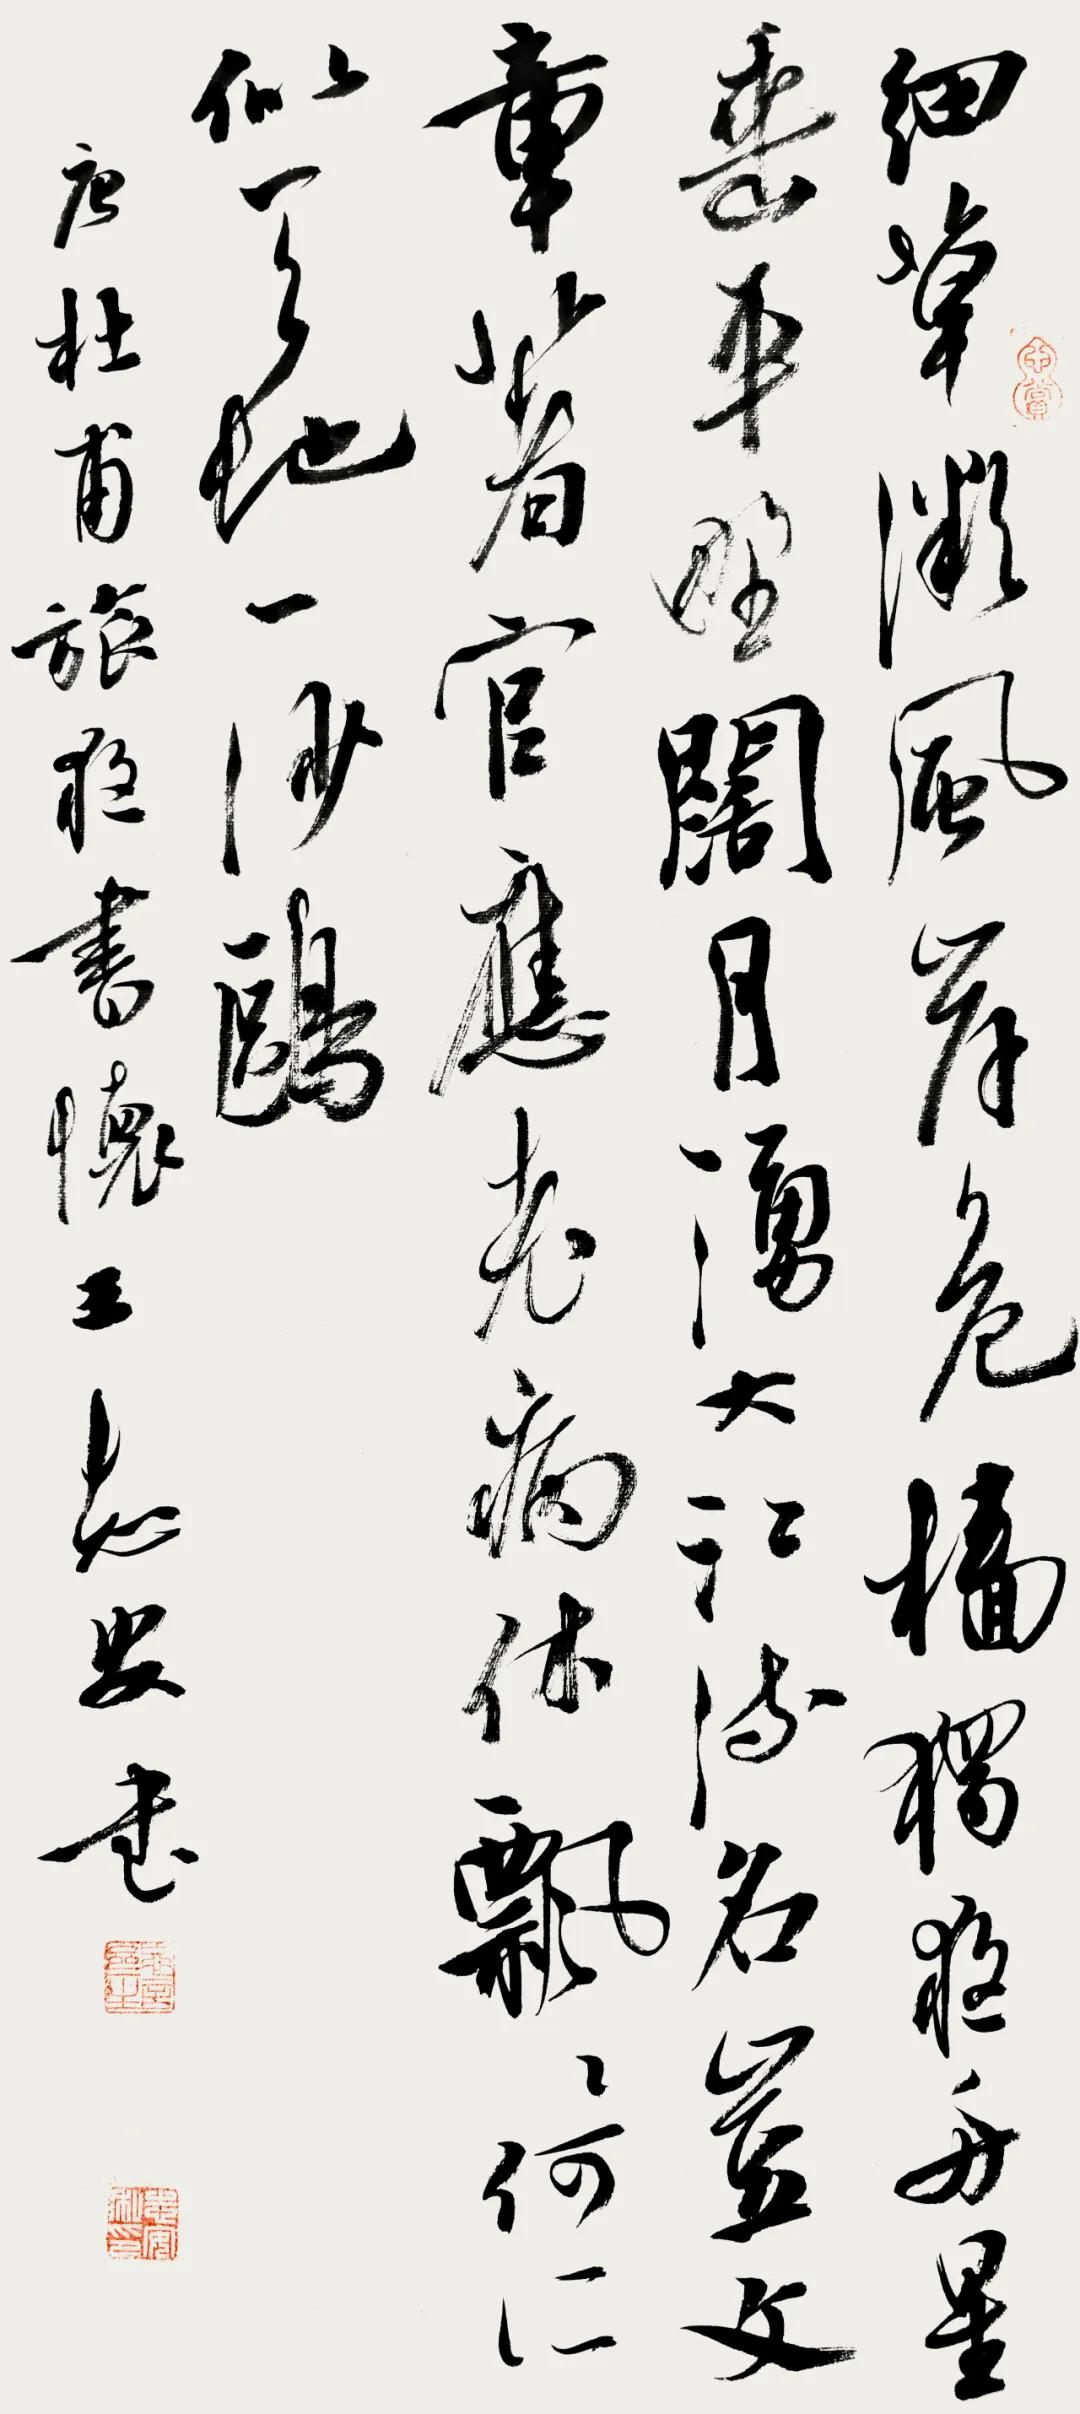 細草微風岸危檣獨夜舟星
垂平野闊月湧大江流名豈文
章著官應老病休飄〻何所
似天地一沙鷗
唐杜甫旅夜書懷 王志安書